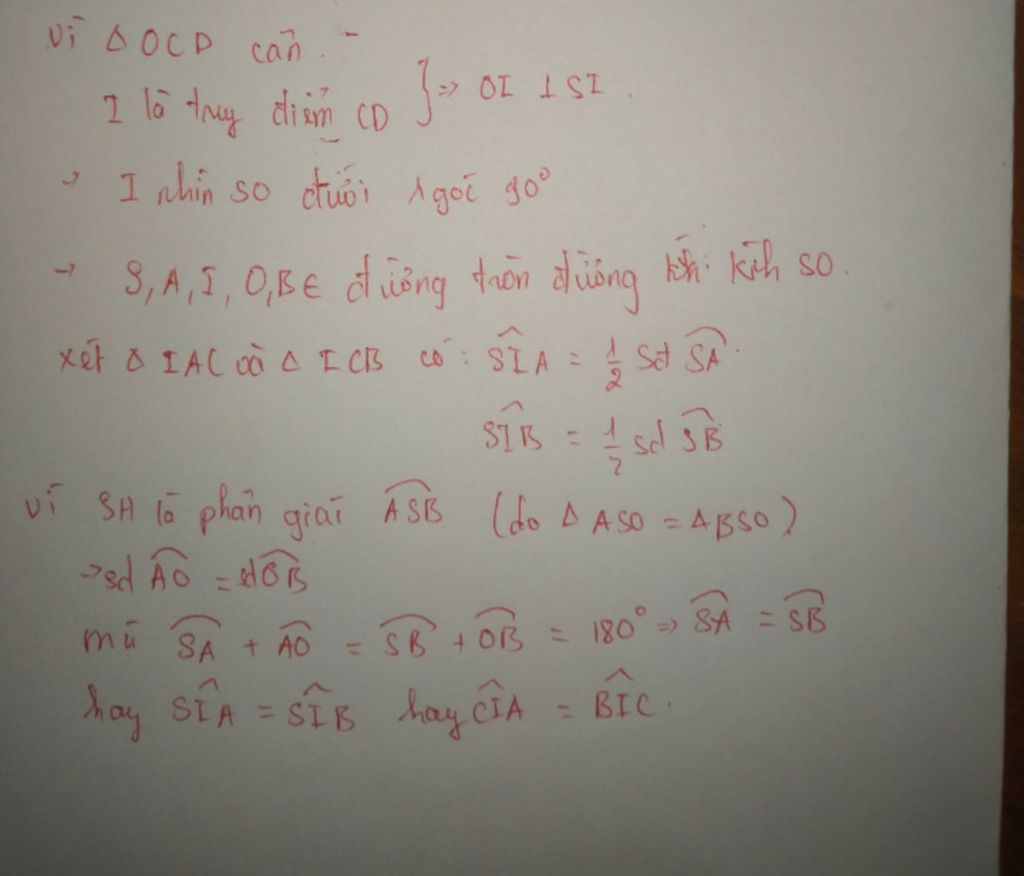 Vì Δ OCD cân.
I là truy điểm CD } => OI ⊥ SI.
→ I nhìn SO dưới 1 góc 90°
→ S, A, I, O, B ∈ đường tròn đường kính SO.
xét Δ IAC và Δ ICB có: \widehat{SIA} = \frac{1}{2} Sđ \overset{\frown}{SA}.
\widehat{SIB} = \frac{1}{2} sđ \overset{\frown}{SB}
Vì SH là phân giái \widehat{ASB} (do Δ ASO = Δ BSO)
→ sđ \overset{\frown}{AO} = sđ \overset{\frown}{OB}
mà \overset{\frown}{SA} + \overset{\frown}{AO} = \overset{\frown}{SB} + \overset{\frown}{OB} = 180° => \overset{\frown}{SA} = \overset{\frown}{SB}
hay \widehat{SIA} = \widehat{SIB} hay \widehat{CIA} = \widehat{BIC}.